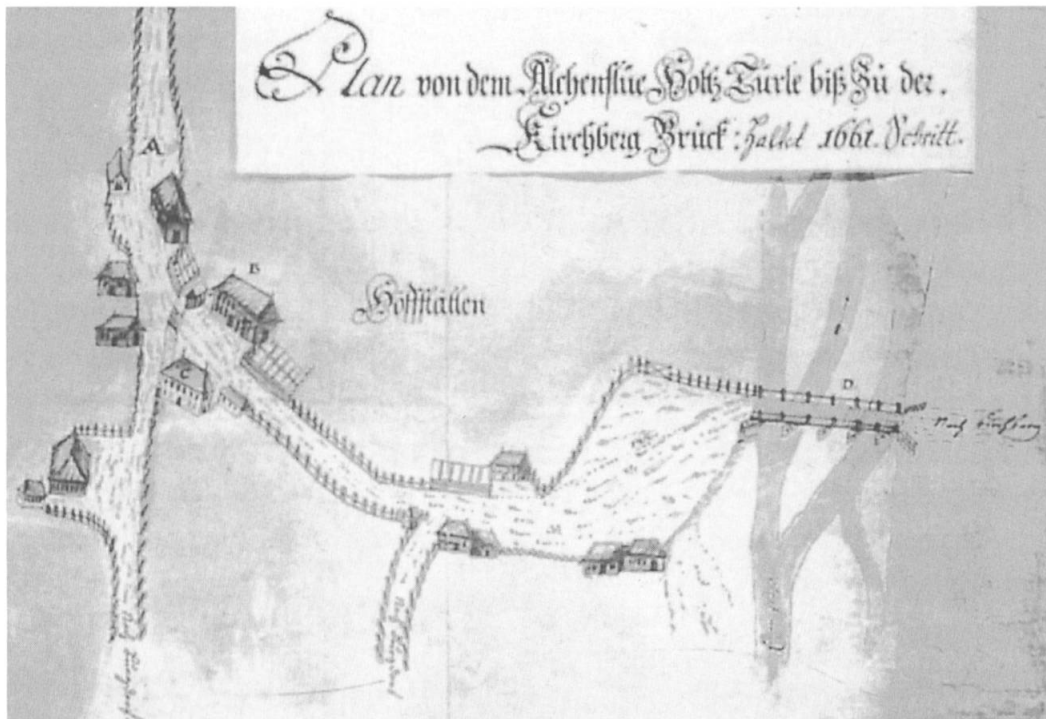 Plan von dem Alchenflüe Holtz Türle biß Zu der.
Kirchberg Brück: haltet 1661. Schritt.
A
B
Hoffstätten
C
D
Nach Kirchberg
M
Nach
Nach